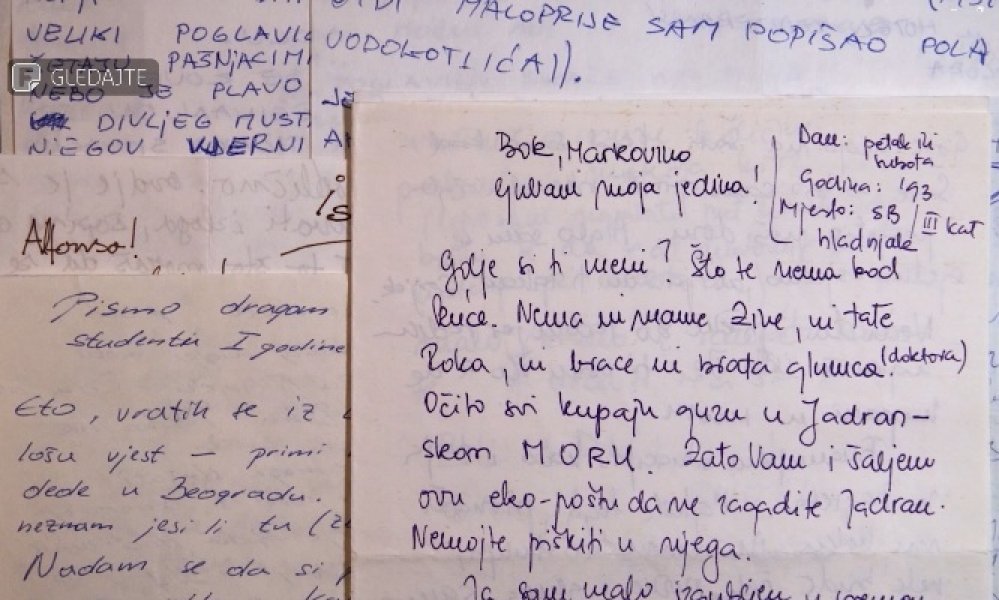 MALOPRIJE SAM POPISAO POLA
VODOKOTLIĆA)).
VELIKI POGLAVI
PAŠNJACIMA
GLEDAJTE
NEBO SE PLAVO
DIVLJEG MUST
NJEGOV VJERNI
Alfonso!
Pismo dragom
studentu I godine
Eto, vratih se iz
lošu vjest – primi
dede u Beogradu.
neznam jesi li tu
Nadam se da si
Bok, Markovino
ljubavi moja jedina!
Dan: petak ili
subota
Godina: '93
Mjesto: SB / III kat
hladnjače
Gdje si ti meni? Što te nema kod
kuće. Nema ni mame Zine, ni tate
Roka, ni brace ni brata glumca. (doktora)
Očito svi kupaju guzu u Jadran-
skom MORU. Zato Vam i šaljem
ovu eko-poštu da ne zagadite Jadran.
Nemojte piškiti u njega.
Ja sam malo